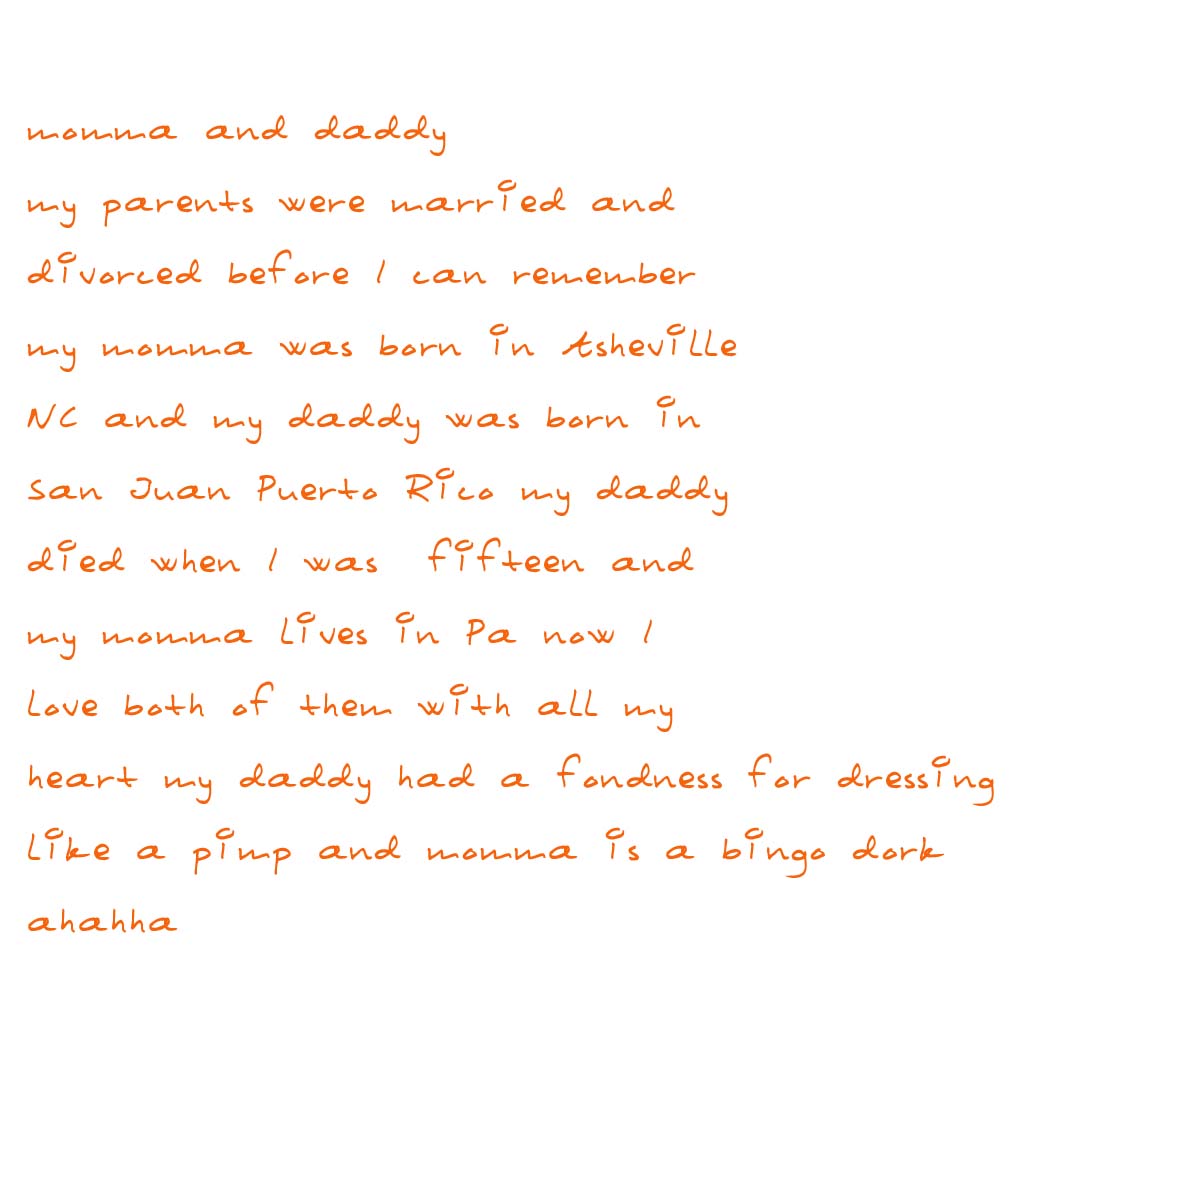 momma and daddy
my parents were married and
divorced before I can remember
my momma was born in Asheville
NC and my daddy was born in
San Juan Puerto Rico my daddy
died when I was  fifteen and
my momma lives in Pa now I
love both of them with all my
heart my daddy had a fondness for dressing
like a pimp and momma is a bingo dork
ahahha